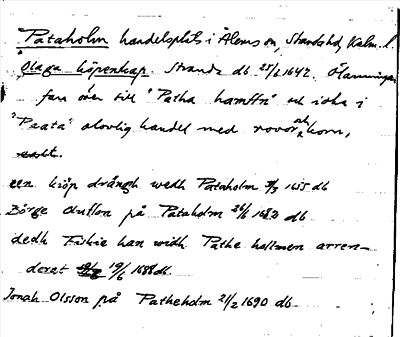 Pataholm handelsplats i Ålems sn, Strands hd, Kalm. l.
"Olaga köpenskap. Strands db 25/2 1642. Ölänningar
fara över till "Patha hamffn" och idka i
"Paata" olovlig handel med rovor och korn,
een kiöp drängh wedh Pataholm 7/3 1655 db
Börge Oluffson på Pataholm 26/6 1682 db
dedh Fiskie han widh Pathe hollmen arren-
derat 19/6 1688 db.
Jonah Olsson på Patheholm 21/2 1690 db